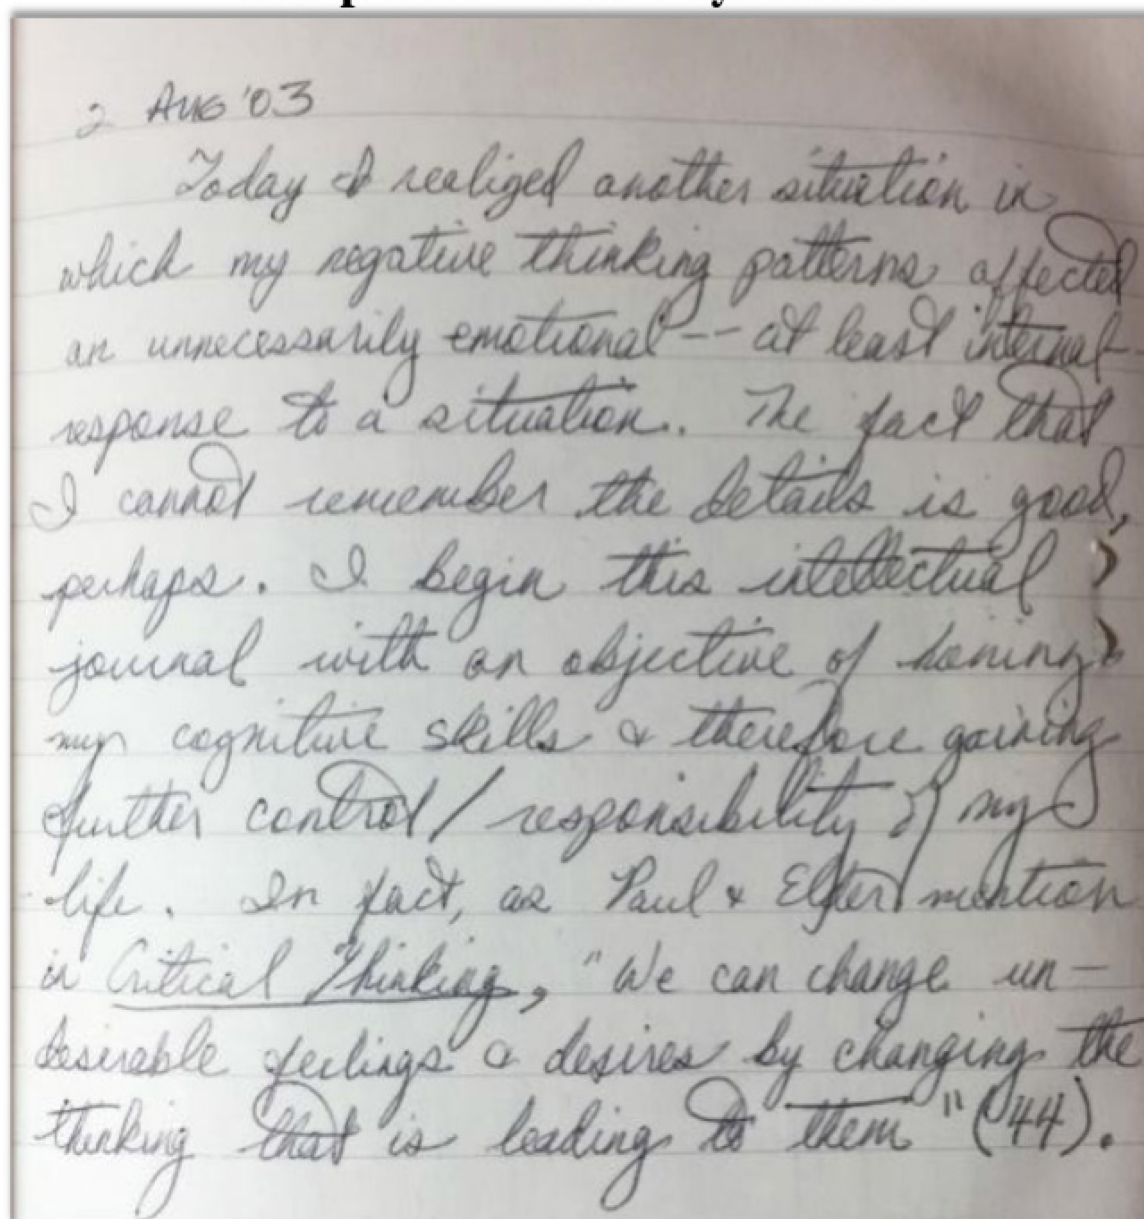 2 Aug '03
Today I realized another situation in
which my negative thinking patterns affected
an unnecessarily emotional -- at least internal -
response to a situation. The fact that
I cannot remember the details is good,
perhaps. I begin this intellectual
journal with an objective of honing
my cognitive skills & therefore gaining
further control / responsibility of my
life. In fact, as Paul & Elder mention
in Critical Thinking, "We can change un-
desirable feelings & desires by changing the
thinking that is leading to them" (44).